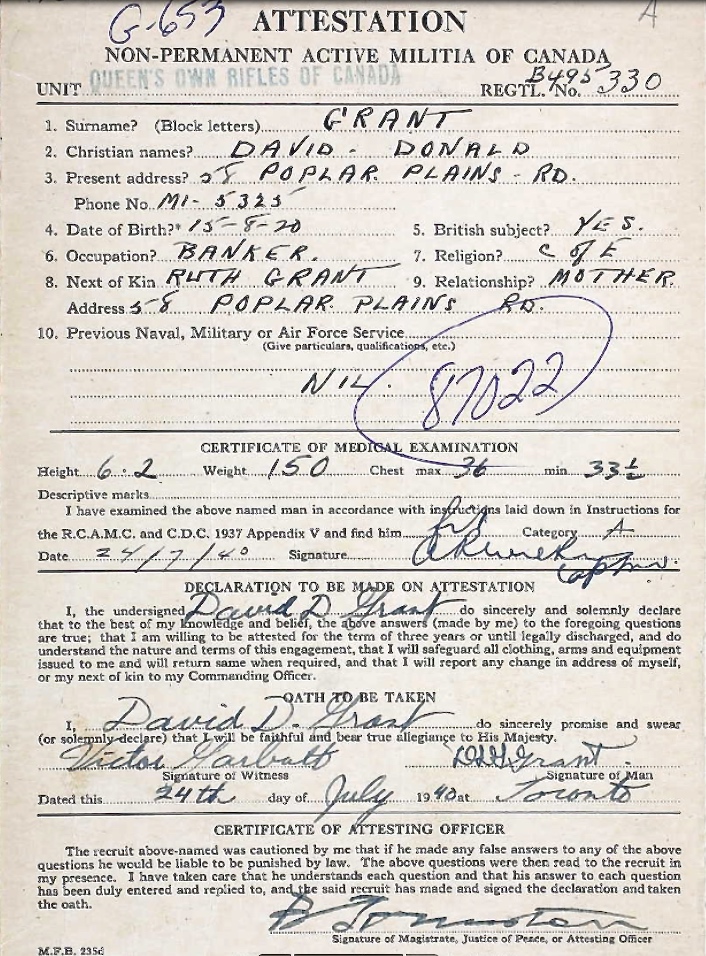 G-653
A
ATTESTATION
NON-PERMANENT ACTIVE MILITIA OF CANADA
QUEEN'S OWN RIFLES OF CANADA
UNIT REGTL. No. B495330
1. Surname? (Block letters) GRANT
2. Christian names? DAVID - DONALD
3. Present address? 58 POPLAR PLAINS - RD.
Phone No MI- 5325
4. Date of Birth?* 15-8-20 5. British subject? YES.
6. Occupation? BANKER. 7. Religion? C of E
8. Next of Kin RUTH GRANT 9. Relationship? MOTHER.
Address 58 POPLAR PLAINS RD.
10. Previous Naval, Military or Air Force Service
(Give particulars, qualifications, etc.)
NIL.
87022
CERTIFICATE OF MEDICAL EXAMINATION
Height 6.2 Weight 150 Chest max 36 min 33½
Descriptive marks
I have examined the above named man in accordance with instructions laid down in Instructions for
the R.C.A.M.C. and C.D.C. 1937 Appendix V and find him fit Category A
Date 24/7/40 Signature
DECLARATION TO BE MADE ON ATTESTATION
I, the undersigned David D Grant do sincerely and solemnly declare
that to the best of my knowledge and belief, the above answers (made by me) to the foregoing questions
are true; that I am willing to be attested for the term of three years or until legally discharged, and do
understand the nature and terms of this engagement, that I will safeguard all clothing, arms and equipment
issued to me and will return same when required, and that I will report any change in address of myself,
or my next of kin to my Commanding Officer.
OATH TO BE TAKEN
I, David D. Grant do sincerely promise and swear
(or solemnly declare) that I will be faithful and bear true allegiance to His Majesty.
Victor Garbutt Grant.
Signature of Witness Signature of Man
Dated this 24th day of July 1940 at Toronto
CERTIFICATE OF ATTESTING OFFICER
The recruit above-named was cautioned by me that if he made any false answers to any of the above
questions he would be liable to be punished by law. The above questions were then read to the recruit in
my presence. I have taken care that he understands each question and that his answer to each question
has been duly entered and replied to, and the said recruit has made and signed the declaration and taken
the oath.
Signature of Magistrate, Justice of Peace, or Attesting Officer
M.F.B. 235d